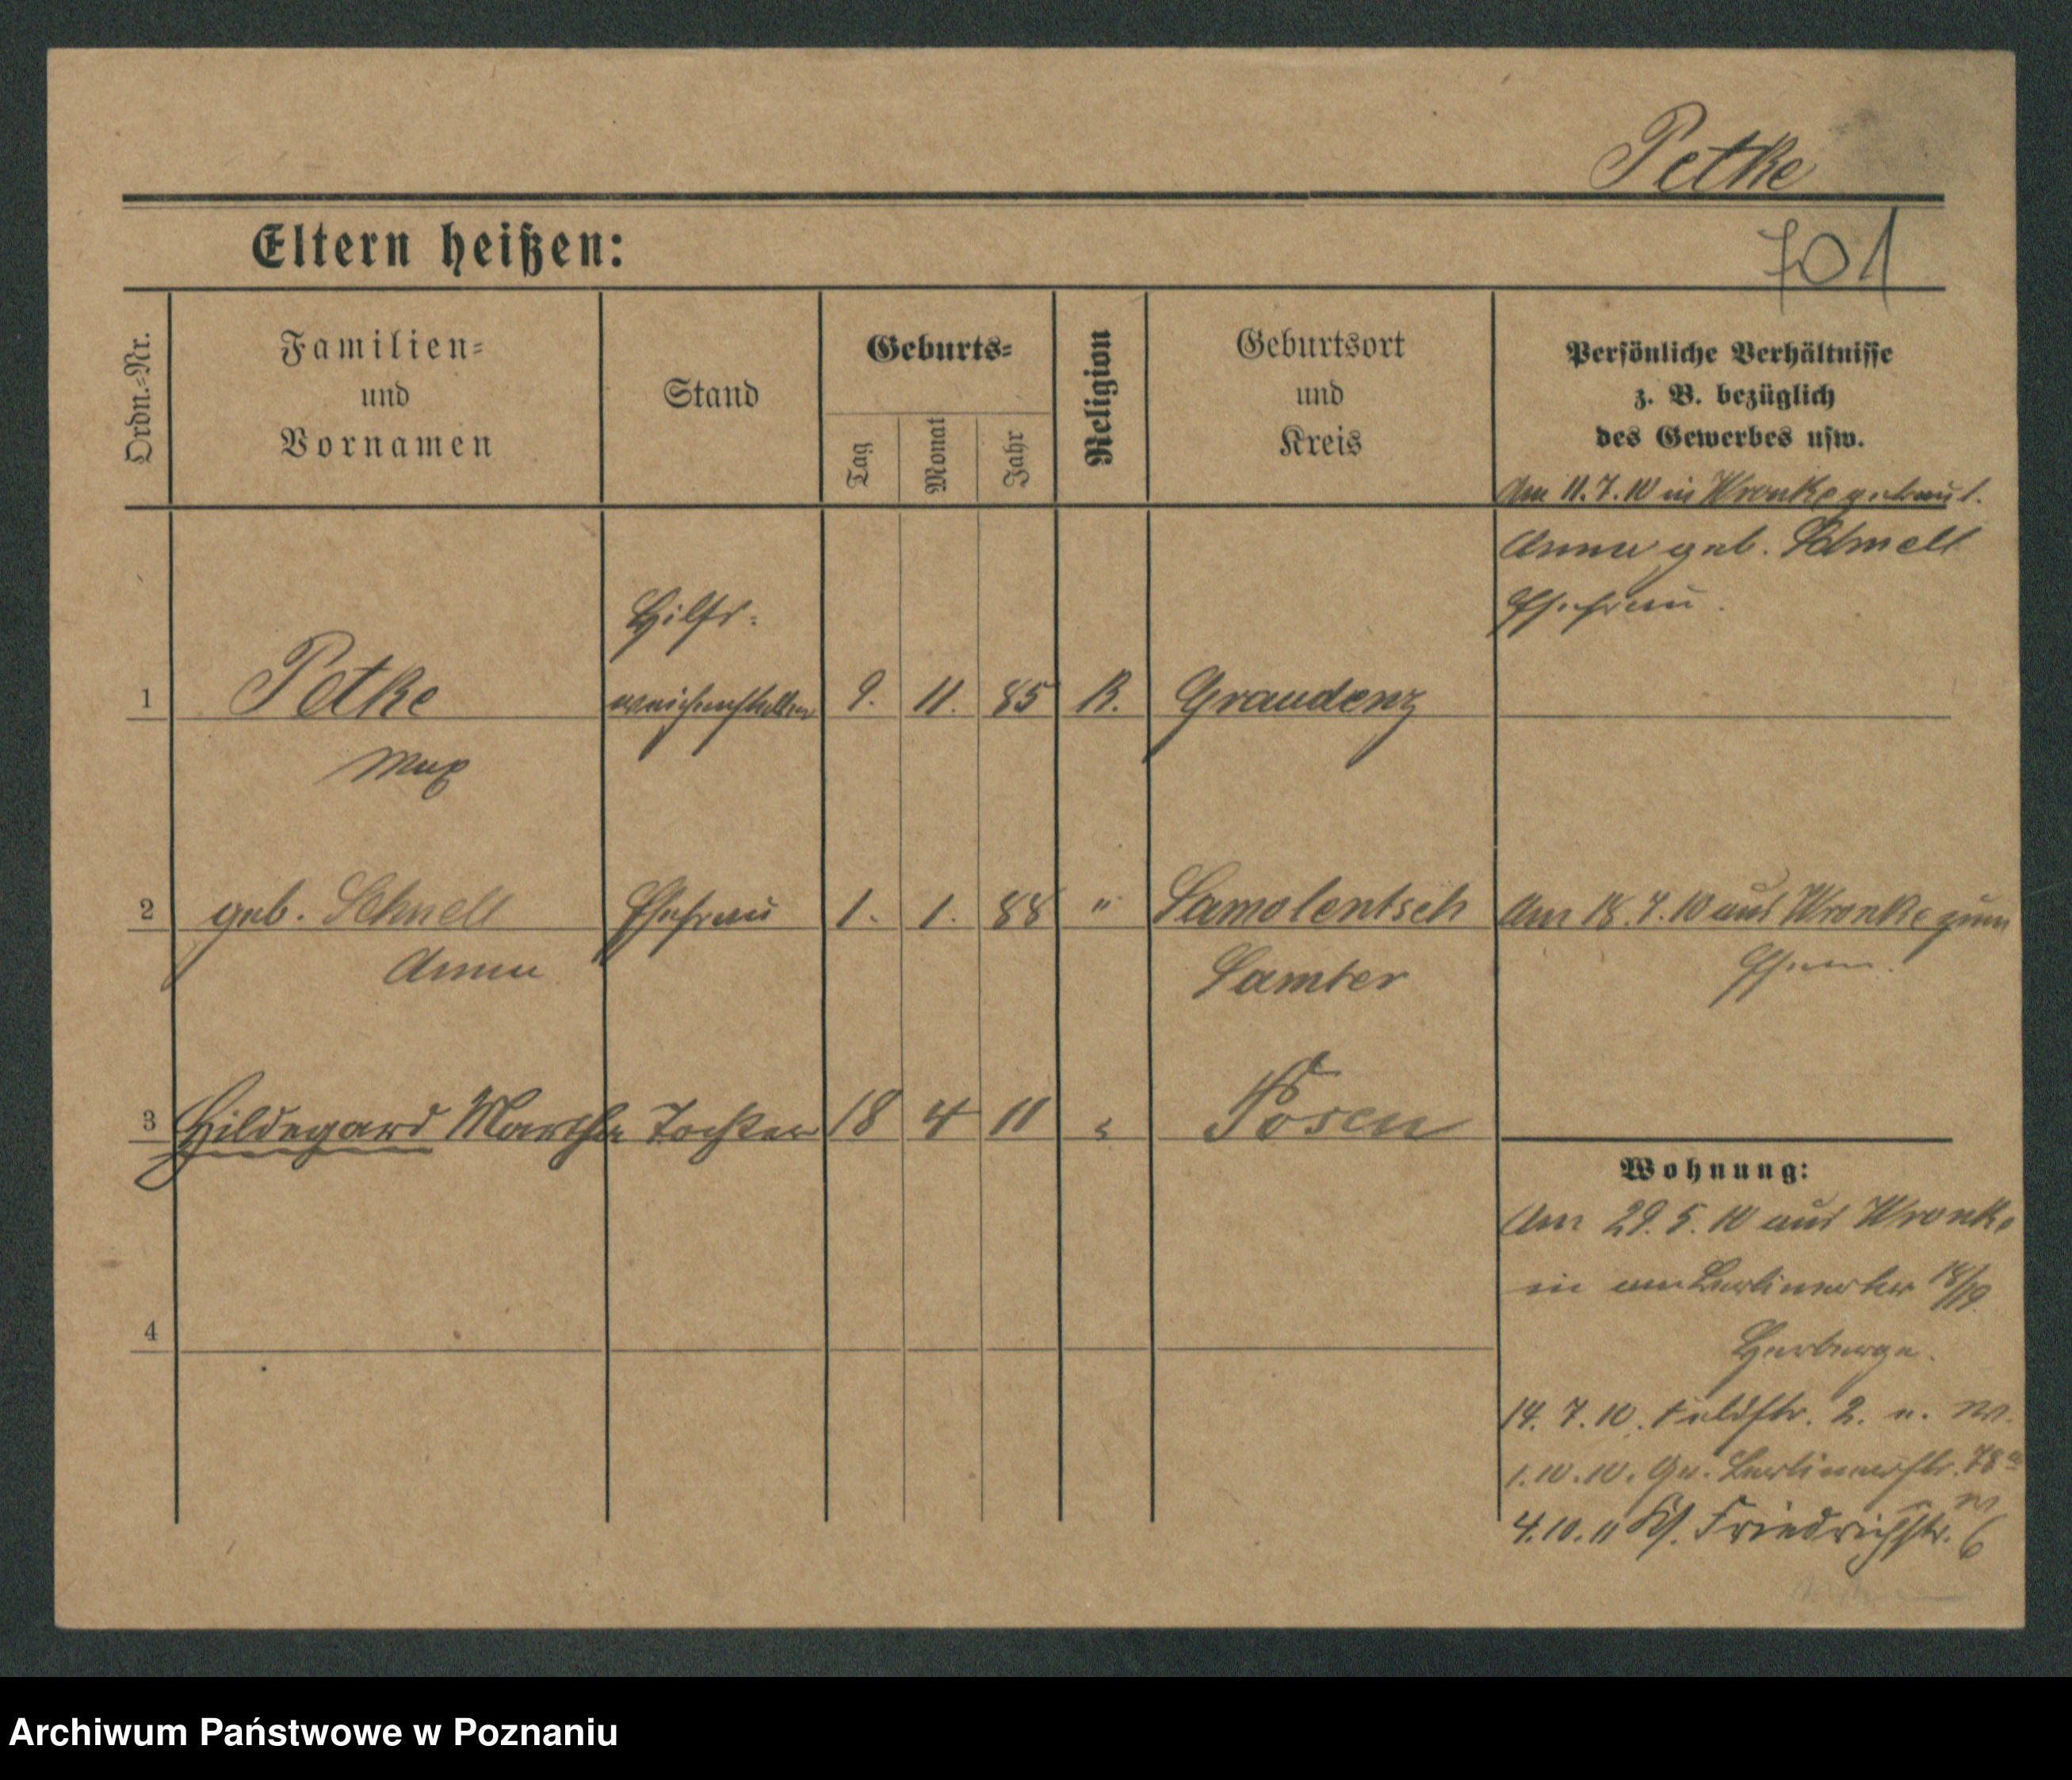 Petke
701
Eltern heißen:
Ordn.-Nr.
Familien-
und
Vornamen
Stand
Geburts-
Tag
Monat
Jahr
Religion
Geburtsort
und
Kreis
Persönliche Verhältnisse
z. B. bezüglich
des Gewerbes usw.
Am 11.7.10 in Wronke getraut.
Anna geb. Schnell
Ehefrau.
1 Petke Hilfs-
weichensteller 9. 11. 85 K. Graudenz
Max
2 geb. Schnell Ehefrau 1. 1. 88 " Samolentsch Am 18.7.10 aus Wronke zum
Anna Samter Ehem.
3 Hildegard Martha Tochter 18 4 11 " Posen
Wohnung:
Am 29.5.10 aus Wronke
in am Berlinertor 18/19
Herberge.
4
14.7.10. Feldstr. 2. u. W.
1.10.10. Gr. Berlinerstr. 78a
W
4.10.11 Kl. Friedrichstr. 6
Archiwum Państwowe w Poznaniu